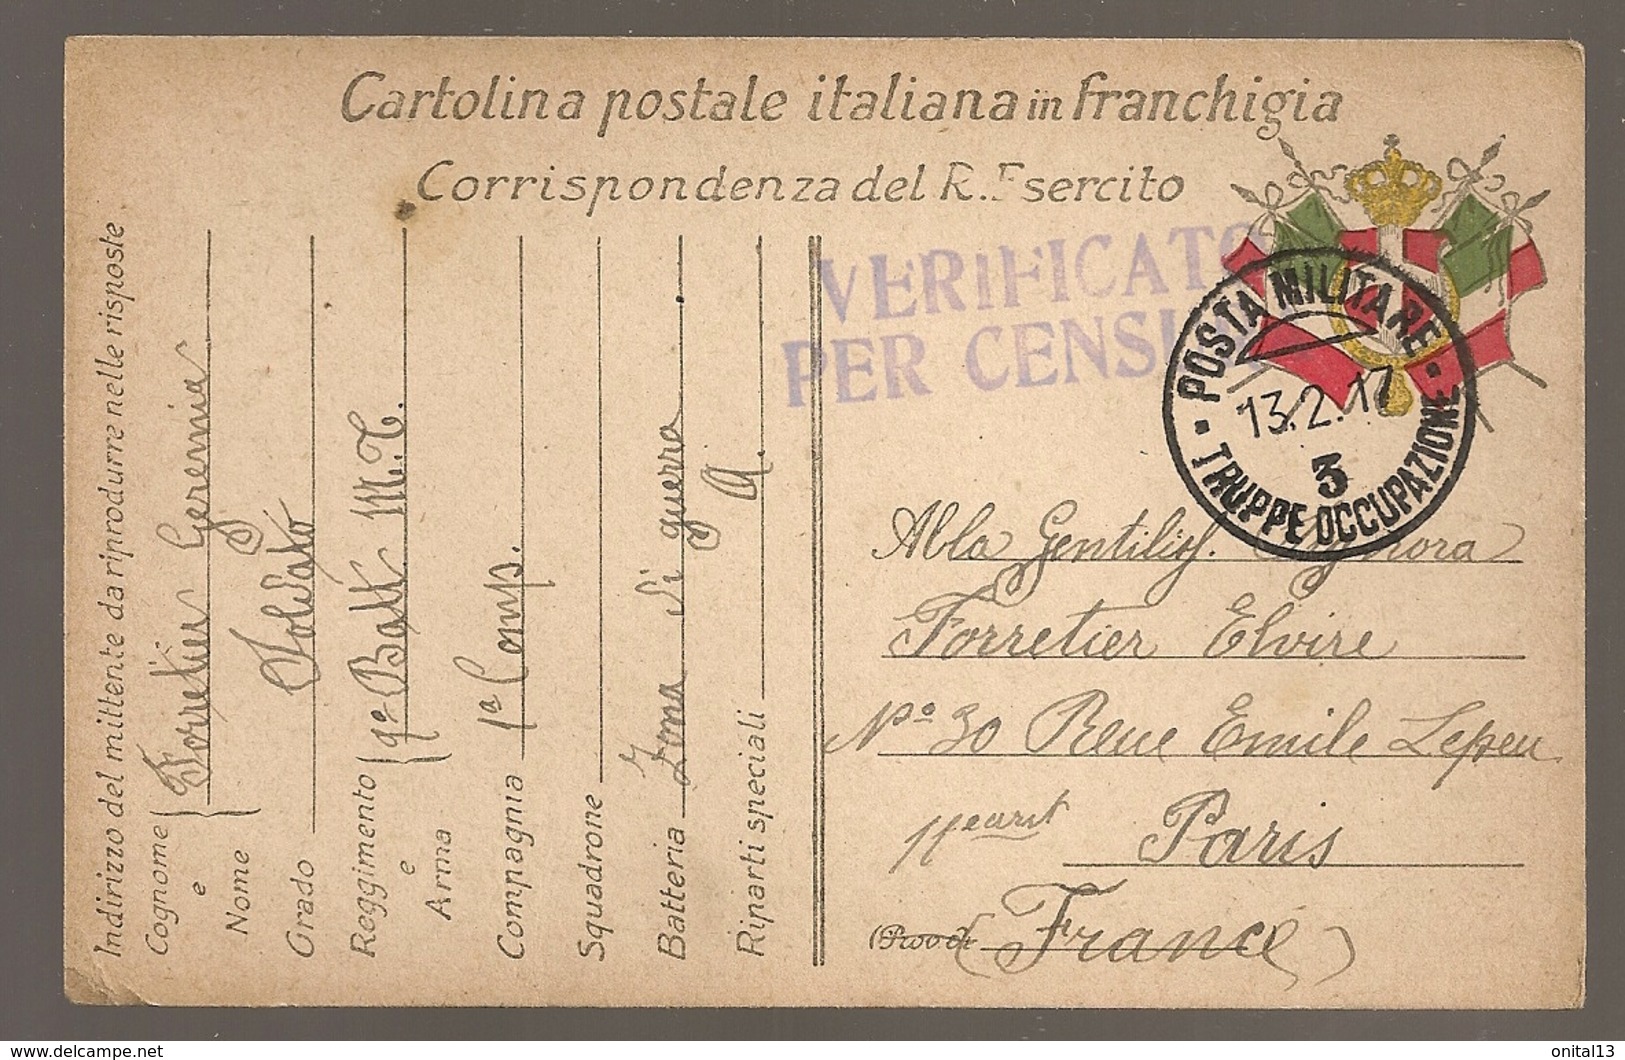 Cartolina postale italiana in franchigia
Corrispondenza del R. Esercito
VERIFICATO
PER CENSU
POSTA MILITARE
13.2.17
3
TRUPPE OCCUPAZIONE
Indirizzo del mittente da riprodurre nelle risposte
Cognome e Nome Forretier Geremia
Grado Soldato
Reggimento e Arma 9º Batt. M.T.
Compagnia 1ª Comp.
Squadrone
Batteria Zona di guerra
Riparti speciali A.
Alla Gentiliss. Signora
Forretier Elvire
Nº 30 Reue Emile Lepeu
11e arit Paris
(Prov. di (France)
www.delcampe.net
onital13